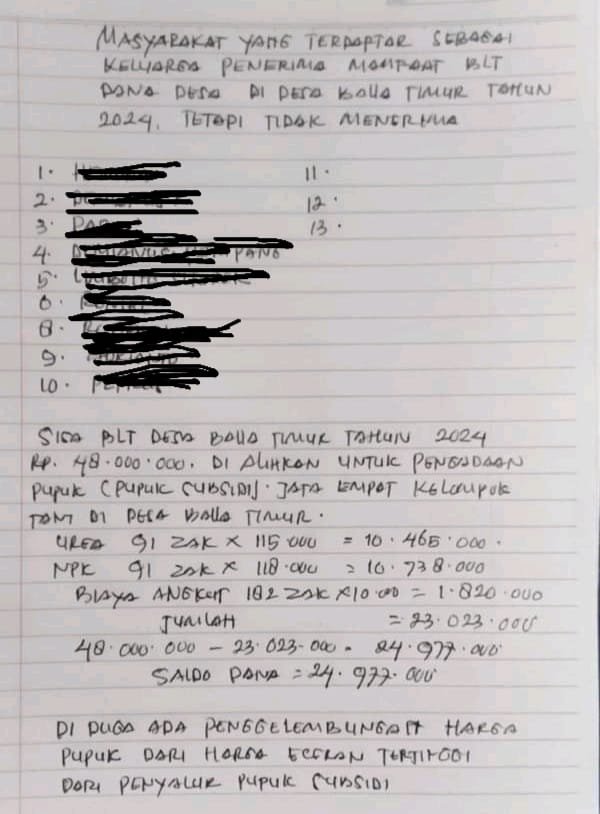 MASYARAKAT YANG TERDAPTAR SEBAGAI
KELUARGA PENERIMA MAMPAAT BLT
DANA DESA DI DESA BALLA TIMUR TAHUN
2024. TETAPI TIDAK MENERIMA
1.
2.
3.
4.
5.
6.
8.
9.
10.
11.
12.
13.
SISA BLT DESA BALLA TIMUR TAHUN 2024
RP. 48.000.000. DI ALIHKAN UNTUK PENGADAAN
PUPUK (PUPUK SUBSIDI). JATA EMPAT KELOMPOK
TANI DI DESA BALLA TIMUR.
UREA 91 ZAK X 115.000 = 10.465.000.
NPK 91 ZAK X 118.000 = 10.738.000
BIAYA ANGKUT 182 ZAK X 10.000 = 1.820.000
JUMLAH = 23.023.000
48.000.000 - 23.023.000 = 24.977.000
SALDO DANA = 24.977.000
DI DUGA ADA PENGGELEMBUNGAN HARGA
PUPUK DARI HARGA ECERAN TERTINGGI
DARI PENYALUR PUPUK SUBSIDI